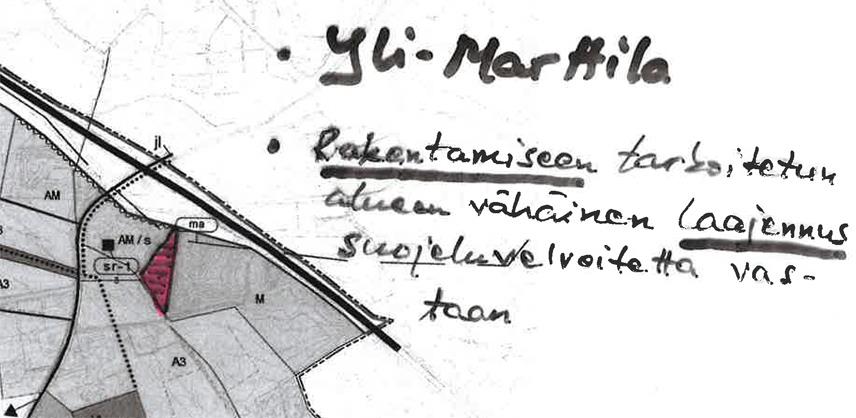 • Yli-Marttila
• Rakentamiseen tarkoitetun
alueen vähäinen laajennus
suojeluvelvoitetta vas-
taan
jl
AM
ma
AM / s
sr-1
A3
M
A3